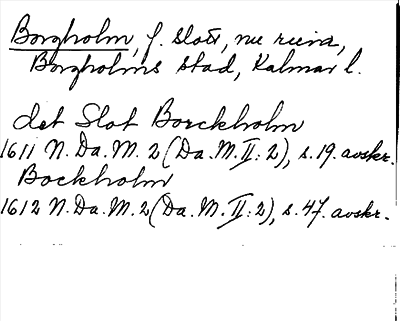 Borgholm, f. slott, nu ruin,
Borgholms stad, Kalmar l.
det Slot Borckholm
1611 N. Da. M. 2 (Da. M. II: 2), s. 19. avskr.
Bockholm
1612 N. Da. M. 2 (Da. M. II: 2), s. 47. avskr.